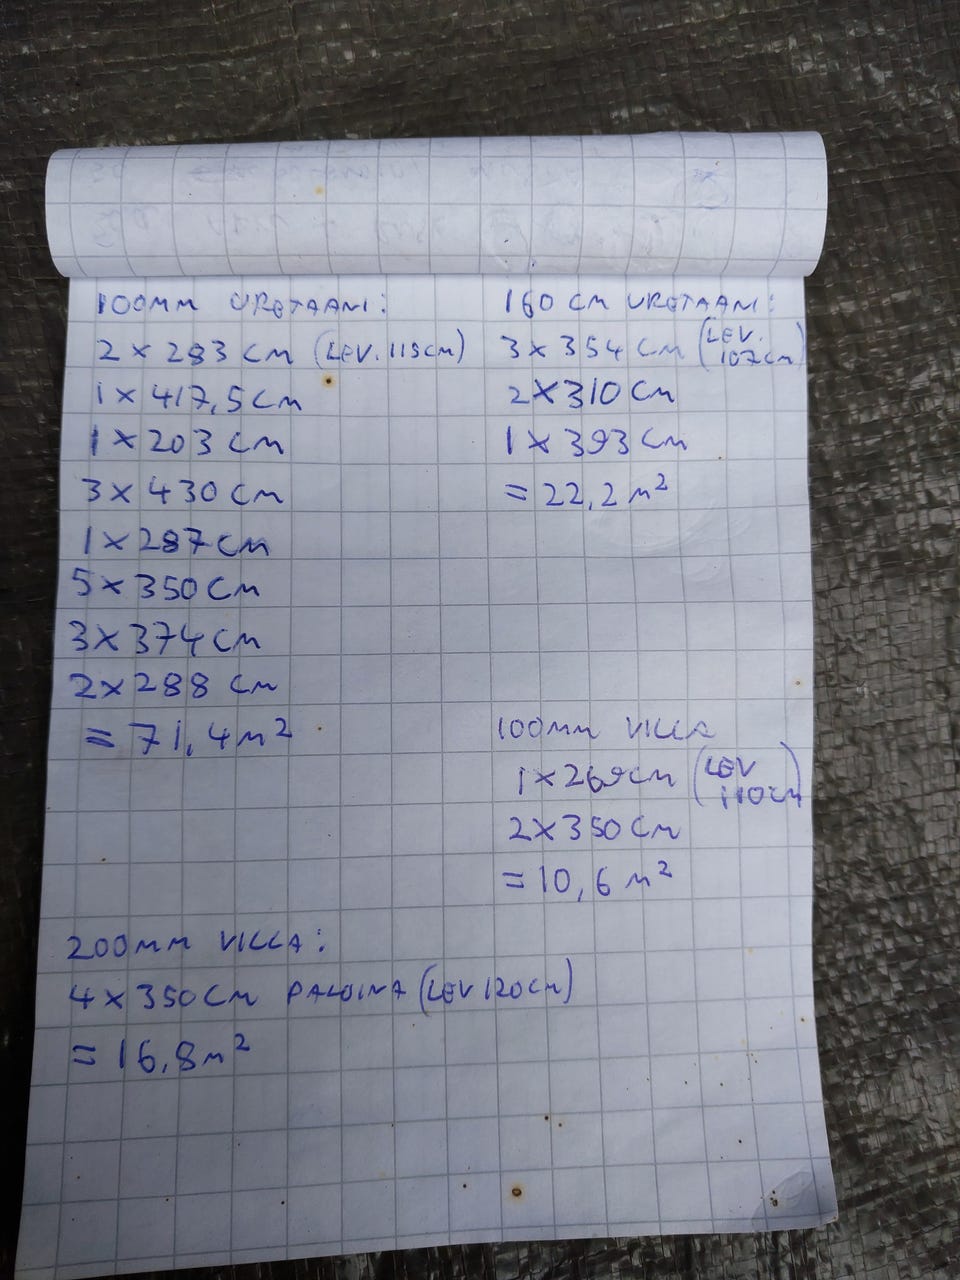 100MM URETAANI:
2 X 283 CM (LEV. 115CM)
1 X 417,5 CM
1 X 203 CM
3 X 430 CM
1 X 287 CM
5 X 350 CM
3 X 374 CM
2 X 288 CM
= 71,4 M²
160 CM URETAANI:
3 X 354 CM (LEV. 107CM)
2 X 310 CM
1 X 393 CM
= 22,2 M²
100MM VILLA
1 X 269CM (LEV 110CM)
2 X 350 CM
= 10,6 M²
200MM VILLA:
4 X 350 CM PALOINA (LEV 120CM)
= 16,8 M²